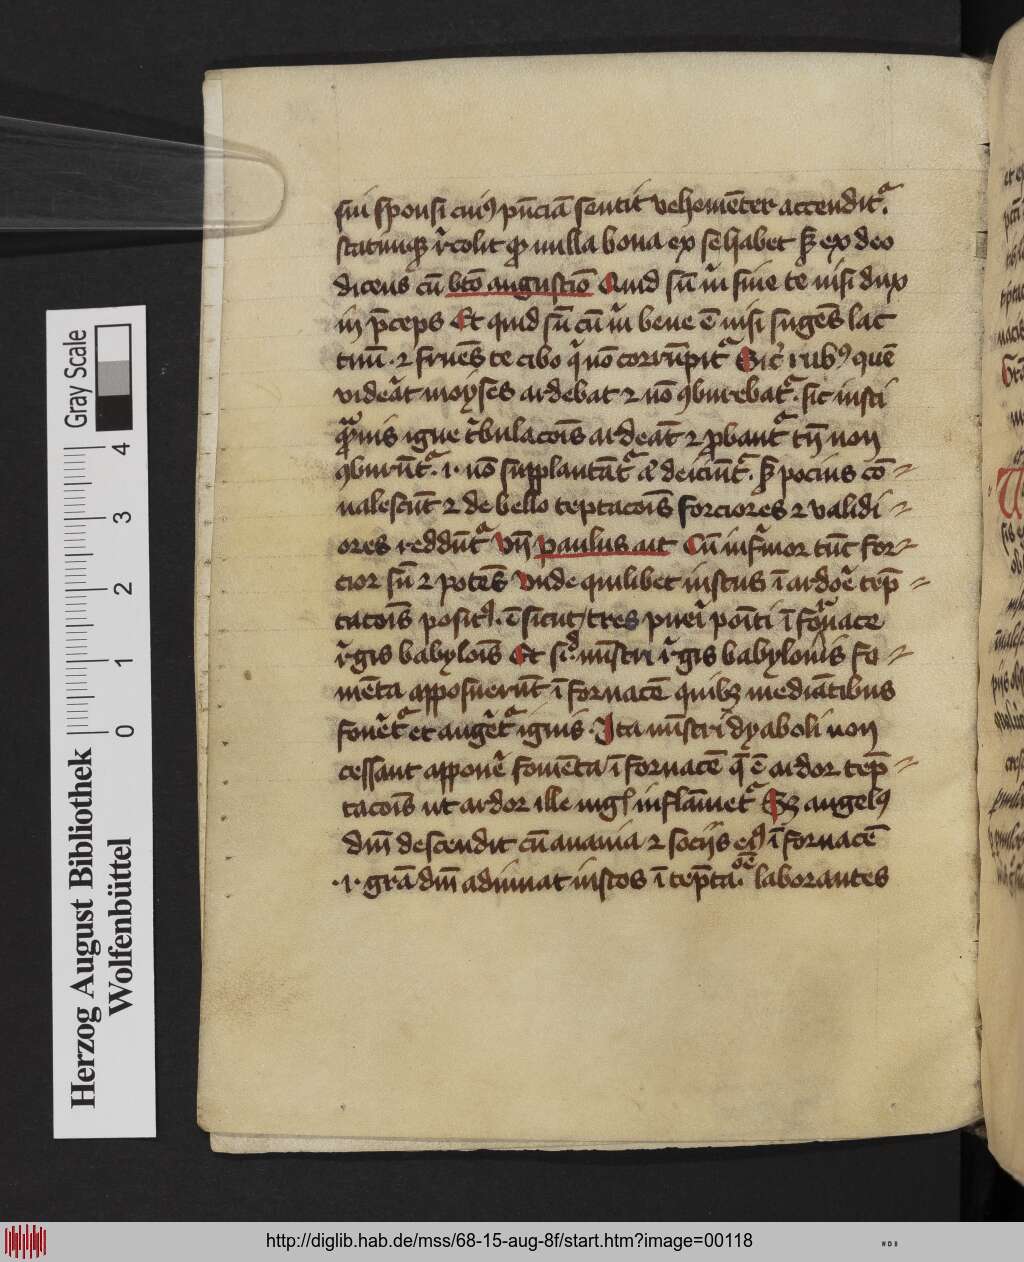 sui sponsi cuiꝰ pn̄ciā sentit vehemēter accendit᷑.
statimqꝫ r̓colit ꝙ nulla bona ex se habet sꝫ ex deo
dicens cū bt̄o augustīo Quid sū m̓ sine te nisi dux
in p̄ceps Et quid sū cū m̓ bene ē nisi sugēs lac
tuū · ⁊ fruēs te cibo q̓ nō corrūpit᷑ Sic̓ rubꝰ quē
videāt moyses ardebat ⁊ nō ꝯburebat᷑. sic iusti
q̓ꝫuis igne t̓bulacōis ardeāt ⁊ ꝓbant᷑ tn̄ non
ꝯburūt᷑ · i · nō supplantāt᷑ aͭ deiciūt᷑ · sꝫ pocius cō⸗
ualescūt ⁊ de bello teptacōis forciores ⁊ validi⸗
ores reddūt᷑ Vn̄ paulus ait Cū infirmor tūc for⸗
cior sū ⁊ potēs Vnde quilibet iustus ī ardoē tep̄⸗
tacōis positꝰ · ē sicut tres pueri poīti ī fornace
r̓gis babylōis Et sic̓ mīstri r̓gis babylonis fo⸗
mēta apposuerūt ī fornacē quibꝫ mediātibus
fouēt᷑ et augēt᷑ ignis · Ita mīstri dyaboli non
cessant apponē fomēta ī fornacē q̄ ē ardor tep̄⸗
tacōis ut ardor ille mgͥ inflāmet᷑ Sꝫ angelꝰ
dn̄i descendit cū anania ⁊ sociis eiꝰ ī fornacē
· i · grā dn̄i adiuuat iustos ī tep̄ta.ōe laborantes
Gray Scale
4
3
2
1
0
Herzog August Bibliothek
Wolfenbüttel
http://diglib.hab.de/mss/68-15-aug-8f/start.htm?image=00118